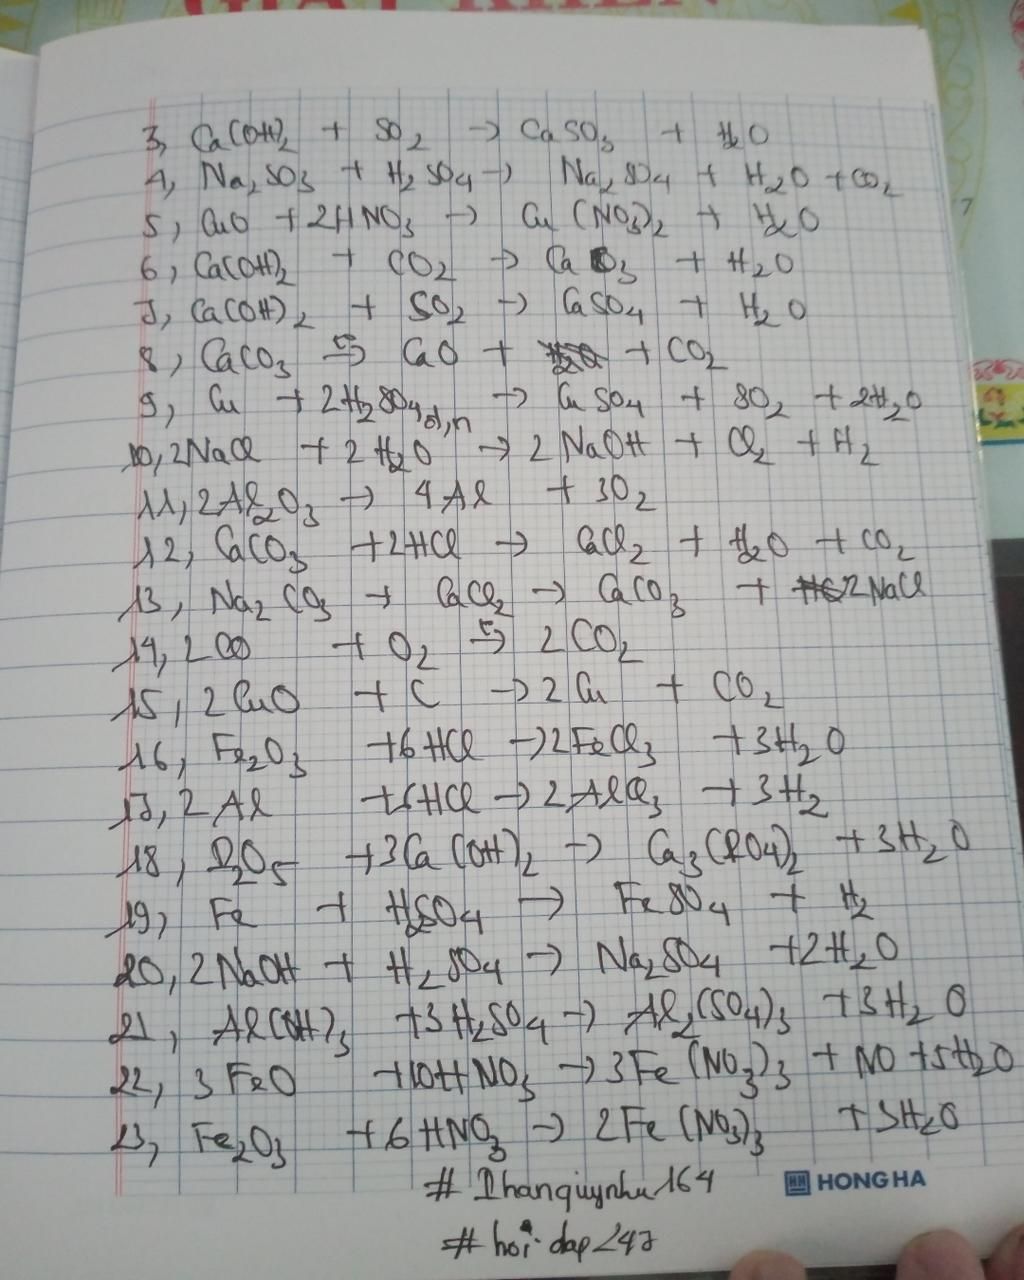 3, Ca(OH)₂ + SO₂ → CaSO₃ + H₂O
4, Na₂SO₃ + H₂SO₄ → Na₂SO₄ + H₂O + CO₂
5, CuO + 2HNO₃ → Cu(NO₃)₂ + H₂O
6, Ca(OH)₂ + CO₂ → CaCO₃ + H₂O
7, Ca(OH)₂ + SO₂ → CaSO₄ + H₂O
8, CaCO₃ → CaO + + CO₂
9, Cu + 2H₂SO₄,đ,n → CuSO₄ + SO₂ + 2H₂O
10, 2NaCl + 2H₂O → 2NaOH + Cl₂ + H₂
11, 2Al₂O₃ → 4Al + 3O₂
12, CaCO₃ + 2HCl → CaCl₂ + H₂O + CO₂
13, Na₂CO₃ + CaCl₂ → CaCO₃ + 2NaCl
14, 2CO + O₂ → 2CO₂
15, 2CuO + C → 2Cu + CO₂
16, Fe₂O₃ + 6HCl → 2FeCl₃ + 3H₂O
17, 2Al + 6HCl → 2AlCl₃ + 3H₂
18, P₂O₅ + 3Ca(OH)₂ → Ca₃(PO₄)₂ + 3H₂O
19, Fe + H₂SO₄ → FeSO₄ + H₂
20, 2NaOH + H₂SO₄ → Na₂SO₄ + 2H₂O
21, Al(OH)₃ + 3H₂SO₄ → Al₂(SO₄)₃ + 3H₂O
22, 3FeO + 10HNO₃ → 3Fe(NO₃)₃ + NO + 5H₂O
23, Fe₂O₃ + 6HNO₃ → 2Fe(NO₃)₃ + 3H₂O
# Phanquiynhu164
HONG HA
# hoi dap247